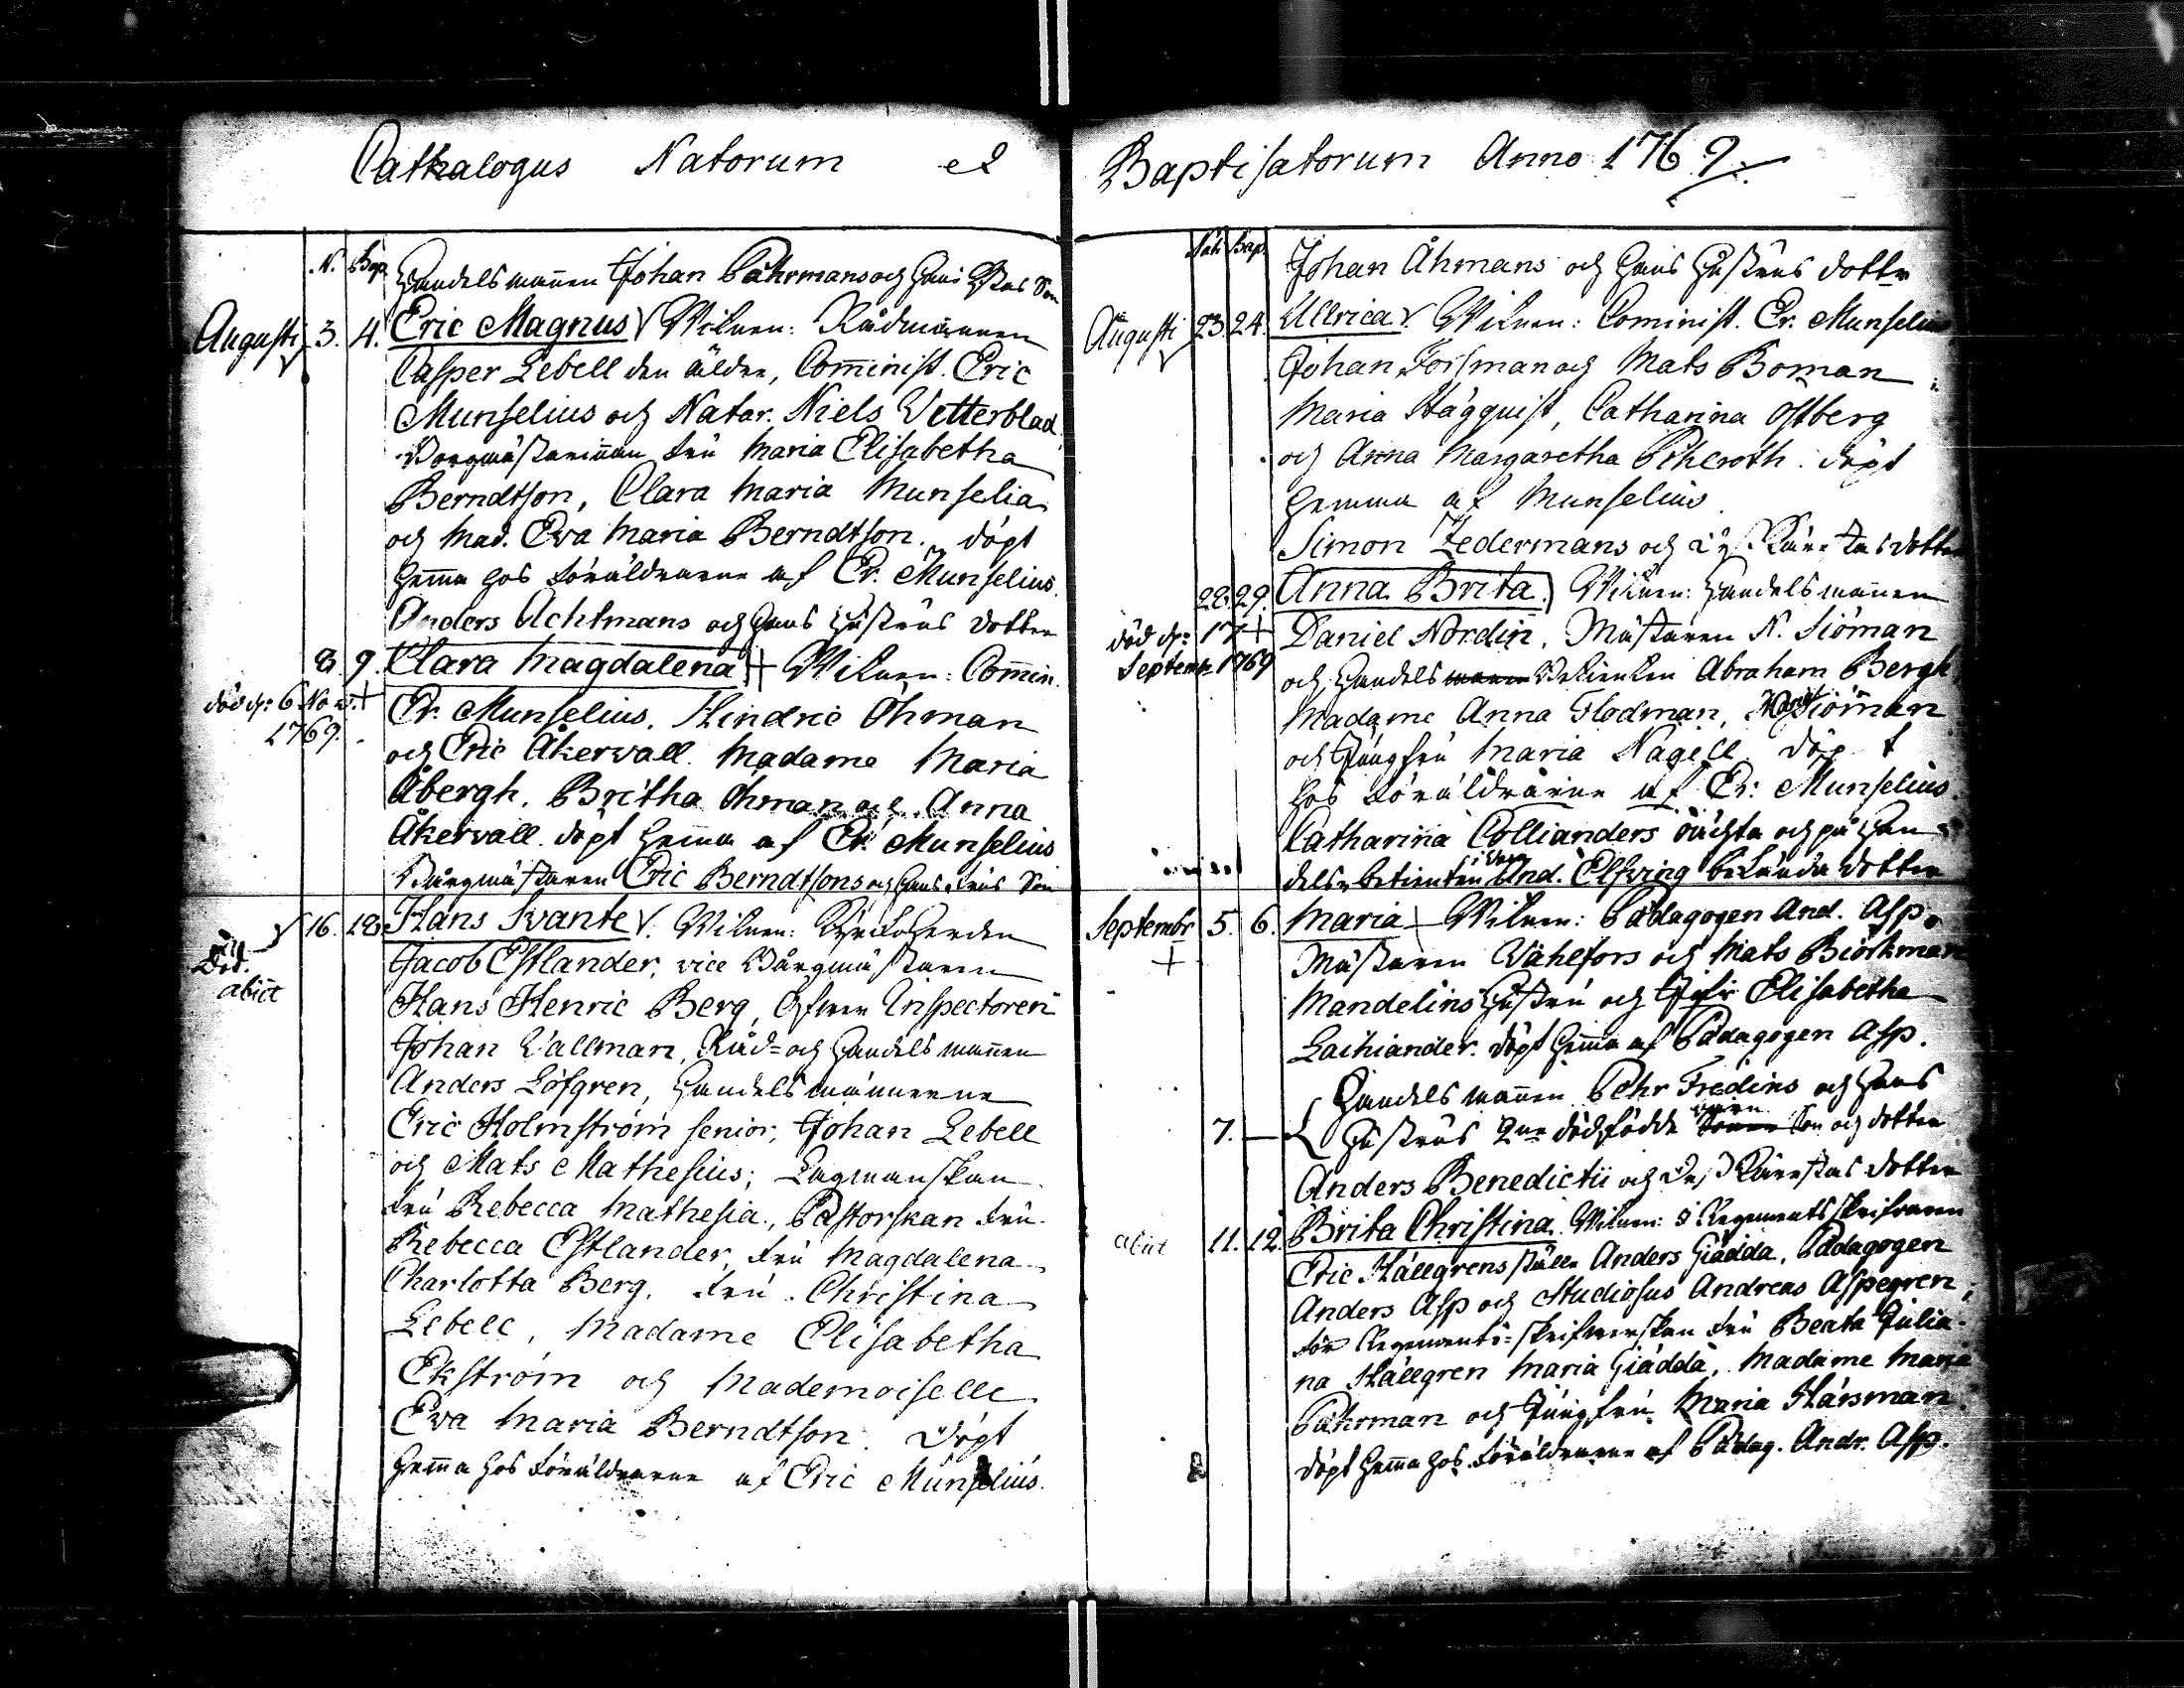 Cathalogus Natorum et
N. Bap. Handelsmannen Johan Påhrmans och Hans Hustrus Son
Augusti 3. 4. Eric Magnus Vitnen: Rådmannen
Casper Lebell den äldre, Cominist. Eric
Munselius och Notar. Niels Vetterblad
Borgmästarinnan Fru Maria Elisabetha
Berndtson, Clara Maria Munselia
och Mad. Eva Maria Berndtson. döpt
hemma hos Föräldrarne af Er. Munselius.
Anders Achtmans och Hans Hustrus dotter
8. 9. Clara Magdalena + Vitnen: Comin.
död d: 6 Nov. + Er. Munselius, Hindric Öhman
1769. och Eric Åkervall. Madame Maria
Åbergh, Britha Öhman och Anna
Åkervall. döpt hemma af Er. Munselius
Bårgmästaren Eric Berndtsons och Hans Frus Son
16. 18. Hans Svante Vitnen: Kyrkoherden
abiit Jacob Estlander, vice Bårgmästaren
Hans Henric Berg, Öfver Inspectoren
Johan Vallman, Råd- och Handelsmannen
Anders Löfgren, Handelsmännerne
Eric Holmström senior, Johan Lebell
och Mats Mathesius; Lagmanskan
Fru Rebecca Mathesia, Pastorskan Fru
Rebecca Estlander, Fru Magdalena
Charlotta Berg, Fru Christina
Lebell, Madame Elisabetha
Ekström och Mademoiselle
Eva Maria Berndtson. Döpt
hemma hos Föräldrarne af Eric Munselius.
Baptisatorum Anno 1769.
Nat. Bap. Johan Åhmans och Hans Hustrus dotter
Augusti 23. 24. Ullrica Vitnen: Cominist. Er. Munselius
Johan Forsman och Mats Boman
Maria Hägquist, Catharina Östberg
och Anna Margaretha Pihlroth. döpt
hemma af Munselius.
Simon Zedermans och Dess Kärestas dotter
28. 29. Anna Brita Vitnen: Handelsmannen
död d: 17 + Daniel Nordin, Mästaren N. Siöman
Septemb. 1769 och Handels Betienten Abraham Bergh,
Madame Anna Flodman, Siöman
och Jungfru Maria Nagell döpt
hos Föräldrarne af Er: Munselius.
Catharina Collianders oächta och på Han-
dels betienten And. Elfving bekända dotter
Septembr 5. 6. Maria Vitnen: Pädagogen And. Asp,
+ Mästaren Vahlfors och Mats Biörkman
Mandelins Hustru och Jfr Elisabetha
Laihiander. döpt hemma af Pädagogen Asp.
Handelsmannen Pehr Fredins och Hans
7. Hustrus 2ne dödfödde barn Son och dotter
Anders Benedictii och Dess Kärestas dotter
abiit 11. 12. Brita Christina. Vitnen: i Regementsskrifvaren
Eric Hällgrens ställe Anders Giädda, Pädagogen
Anders Asp och Studiosus Andreas Aspegren;
för Regements-skrifverskan Fru Beata Julia-
na Hällgren Maria Giädda, Madame Maria
Påhrman och Jungfru Maria Hårsman.
döpt hemma hos Föräldrarne af Pädag. Andr. Asp.